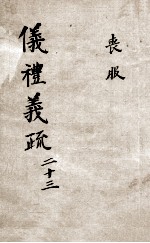 喪服
儀禮義疏二十三